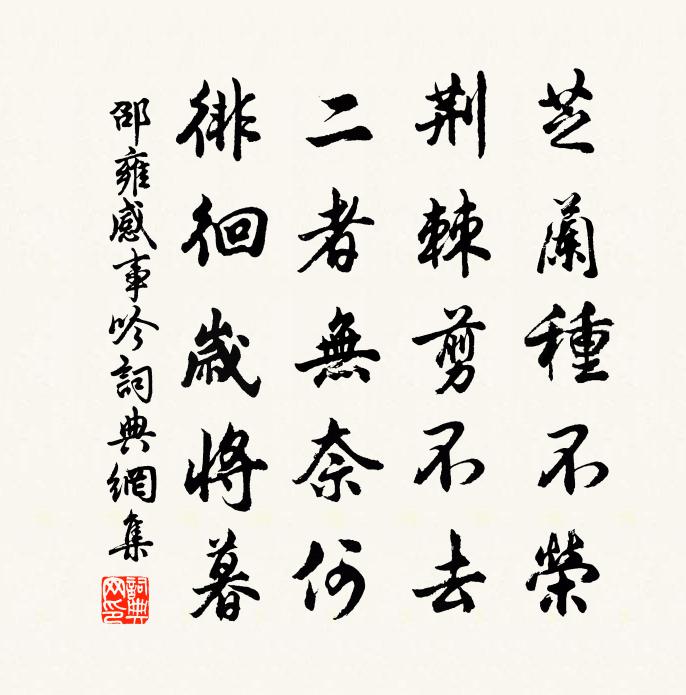 芝蘭種不榮
荆棘剪不去
二者無奈何
徘徊歲將暮
邵雍感事吟詞典網集
詞典網印